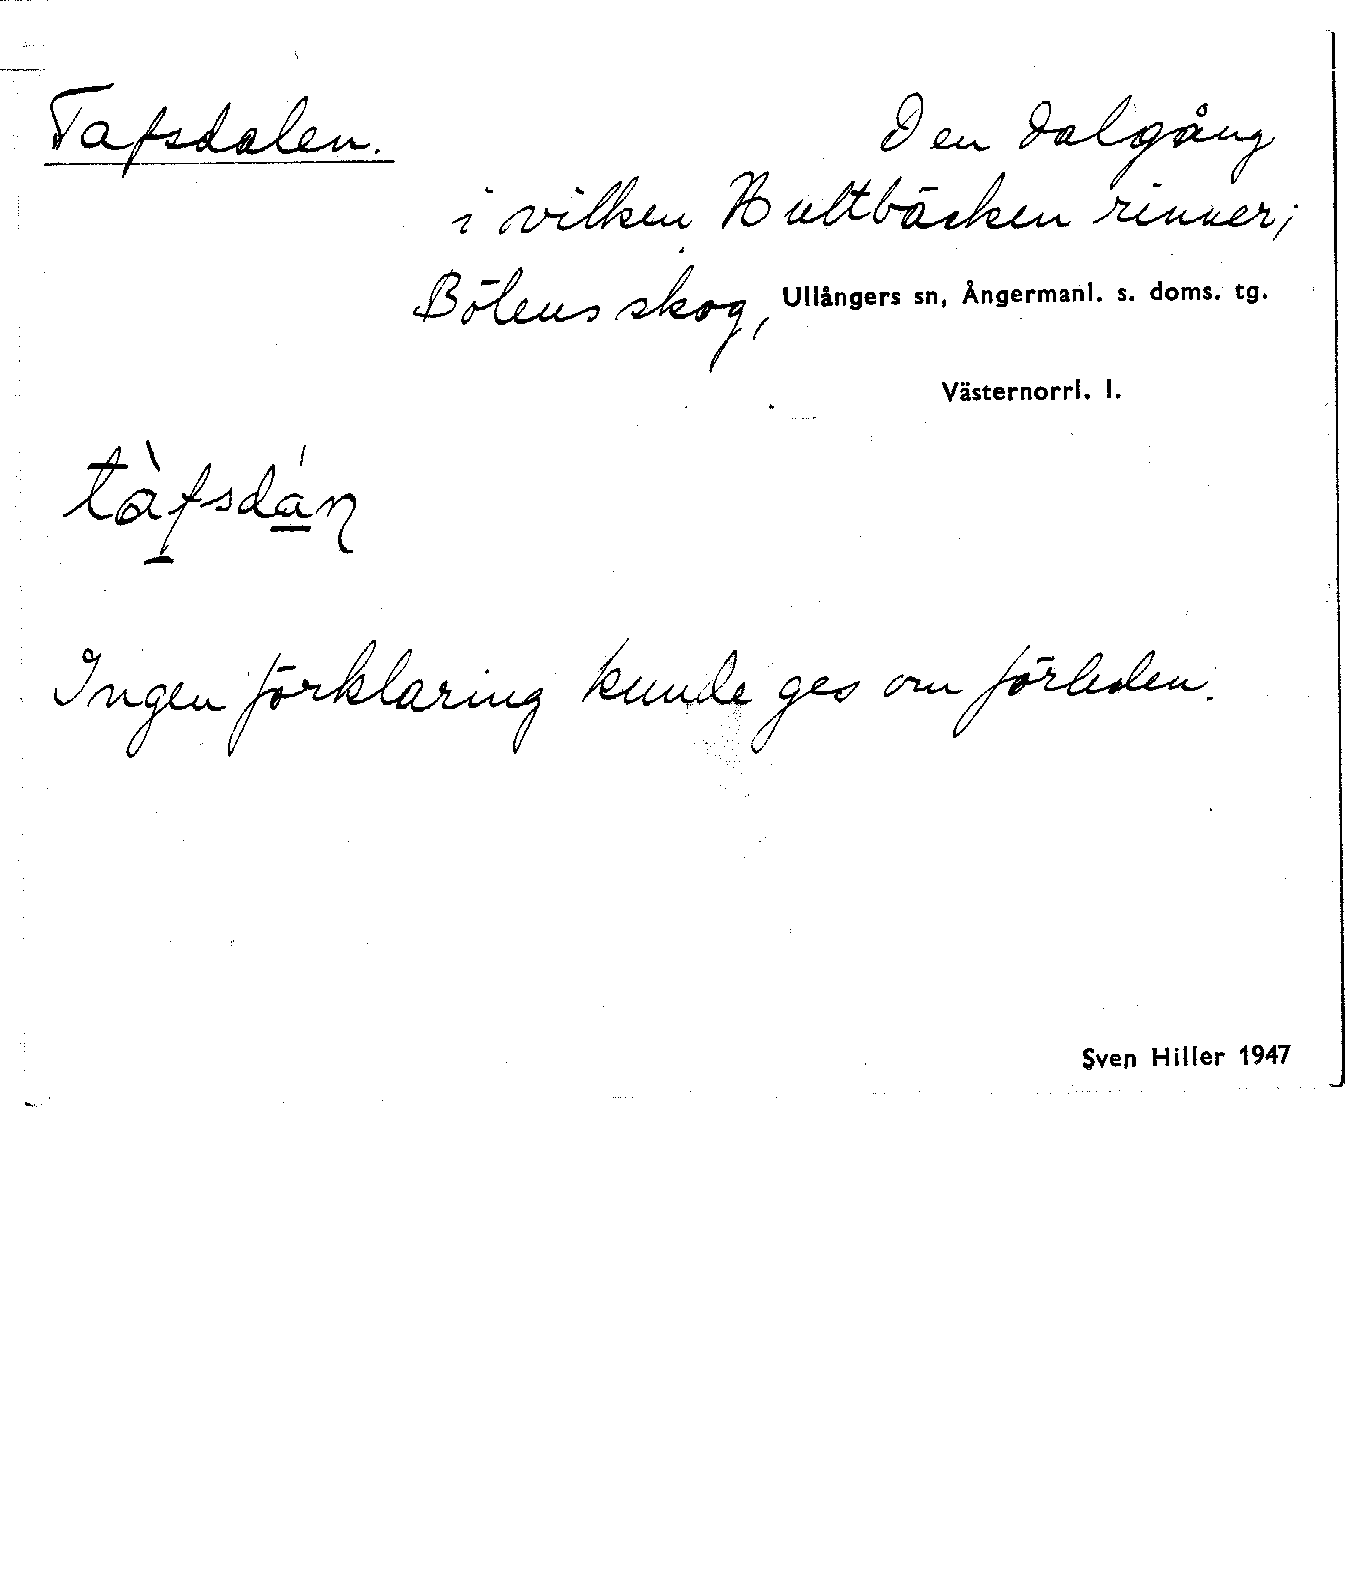 Tafsdalen. Den dalgång
i vilken Hultbäcken rinner;
Bölens skog, Ullångers sn, Ångermanl. s. doms. tg.
Västernorrl. l.
tàfsdán
Ingen förklaring kunde ges om förleden.
Sven Hiller 1947